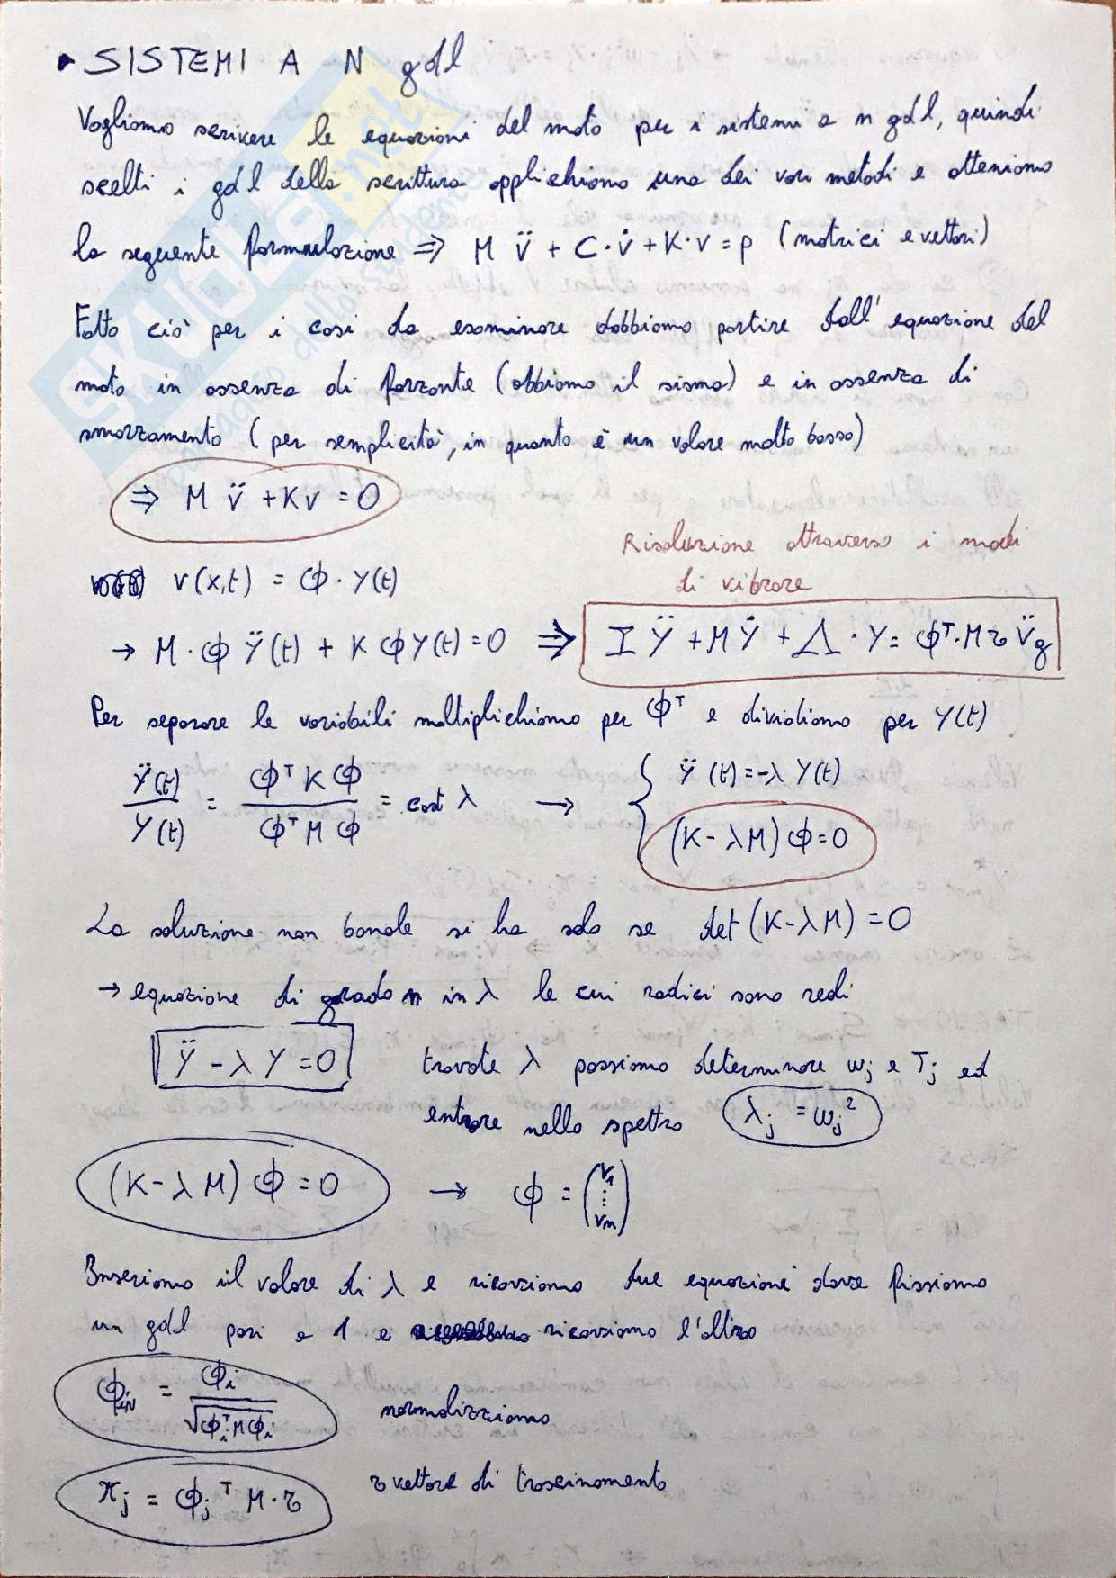 • SISTEMI A N gdl
Vogliamo scrivere le equazioni del moto per i sistemi a n gdl, quindi
scelti i gdl della scrittura applichiamo uno dei vari metodi e otteniamo
la seguente formulazione ⇒ M v̈ + C·v̇ + K·v = p (matrici e vettori)
Fatto ciò per i casi da esaminare dobbiamo partire dall'equazione del
moto in assenza di forzante (abbiamo il sisma) e in assenza di
smorzamento (per semplicità, in quanto è un valore molto basso)
⇒ M v̈ + Kv = 0
Risoluzione attraverso i modi
di vibrare
v(x,t) = Φ · Y(t)
→ M·Φ Ÿ(t) + K Φ Y(t) = 0 ⇒ I Ÿ + M Ẏ + Λ · Y = Φᵀ·M τ v̈g
Per separare le variabili moltiplichiamo per Φᵀ e dividiamo per Y(t)
Ÿ(t)/Y(t) = Φᵀ K Φ / Φᵀ M Φ = cost λ → { Ÿ(t) = -λ Y(t)
(K - λM) Φ = 0
La soluzione non banale si ha solo se det (K - λM) = 0
→ equazione di grado n in λ le cui radici sono reali
Ÿ - λ Y = 0 trovate λ possiamo determinare ωj e Tj ed
entrare nello spettro λj = ωj²
(K - λ M) Φ = 0 → Φ = (v1 ⋮ vn)
Inseriamo il valore di λ e ricaviamo due equazione dove fissiamo
un gdl pari a 1 e ricaviamo l'altro
ΦiN = Φi / √Φiᵀ M Φi normalizziamo
πj = Φjᵀ M·τ τ vettore di trascinamento
SKUOLA.net